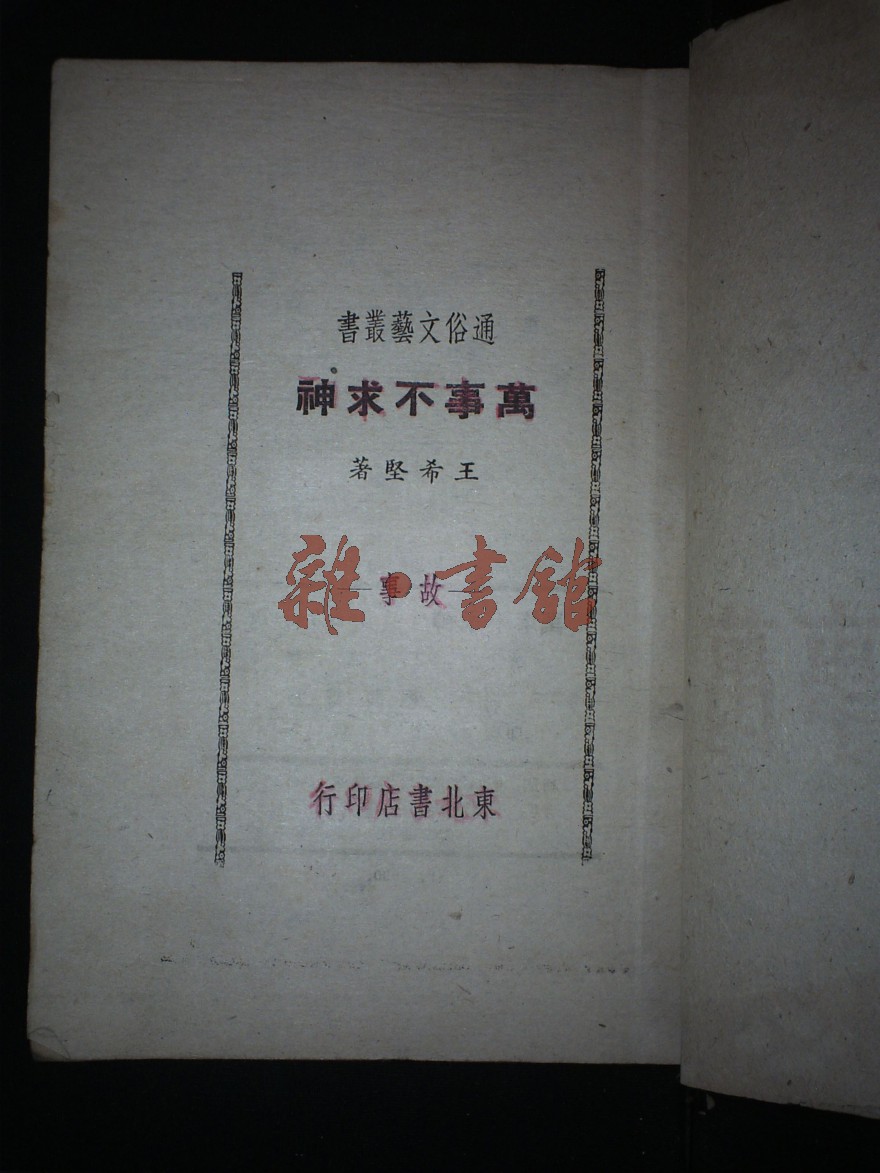 通俗文藝叢書
萬事不求神
王希堅著
故事
雜·書館
東北書店印行